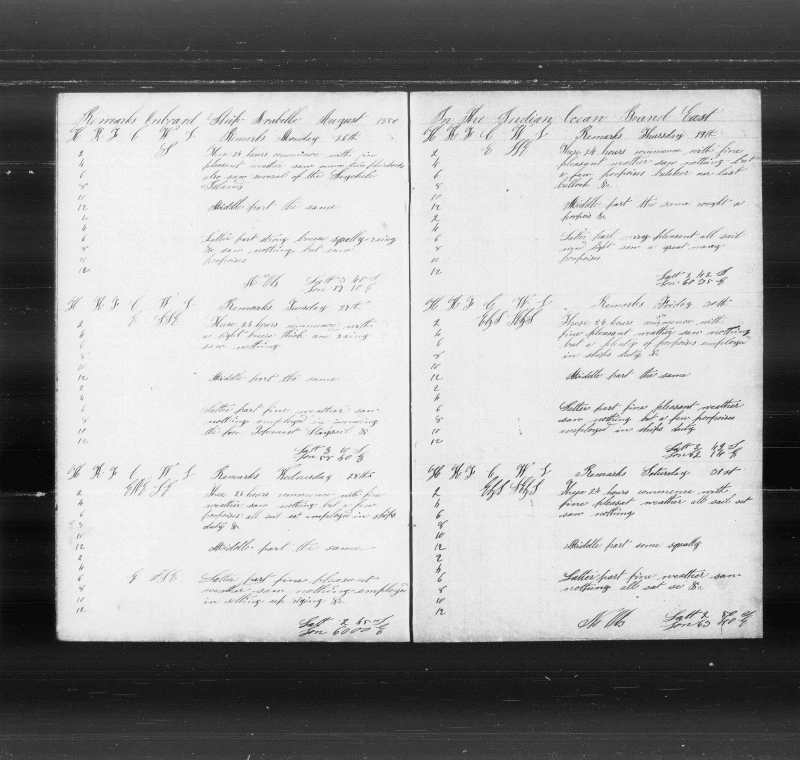 Remarks Onboard Ship Arabella August
H K F C W L Remarks Monday 26th
2 These 24 hours commence with
4 pleasant weather saw
6 also saw several of the
8 Islands
10
12 Middle part the same
2
4
6 Latter part strong breese squally
8 & saw nothing but
10 porpoises
12
Latt 3 40 S
Lon
H K F C W L Remarks Tuesday 27th
2 These 24 hours commence with
4 a light breese thick and
6 saw nothing
8
10
12 Middle part the same
2
4
6 Latter part fine weather saw
8 nothing employed in
10 the fore &
12
Latt 3 10 S
Lon 58 40 E
H K F C W L Remarks Wednesday 28th
2 These 24 hours commence with fine
4 weather saw nothing but a few
6 porpoises all sail sat employed in ships
8 duty &
10
12 Middle part the same
2
4
6 Latter part fine pleasant
8 weather saw nothing employed
10 in setting up &
12
Latt 2 45 S
Lon 60 00 E
In The Indian Ocean Bound East
H K F C W L Remarks Thursday 29th
2 These 24 hours commence with fine
4 pleasant weather saw nothing but
6 a few porpoises
8 &
10
12 Middle part the same caught a
2 &
4
6 Latter part very pleasant all sail
8 saw a great many
10 porpoises
12
Latt 2 42 S
Lon 60 35 E
H K F C W L Remarks Friday 30th
2 These 24 hours commence with
4 fine pleasant weather saw nothing
6 but a plenty of porpoises employed
8 in ships duty &
10
12 Middle part the same
2
4
6 Latter part fine pleasant weather
8 saw nothing but a few porpoises
10 employed in ships duty
12
Latt 2 42 S
Lon 62 14 E
H K F C W L Remarks Saturday 31st
2 These 24 hours commence with
4 fine pleasat weather all sail sat
6 saw nothing
8
10
12 Middle part some squally
2
4
6 Latter part fine weather saw
8 nothing all sat &
10
12
Latt 2 50 S
Lon 63 40 E